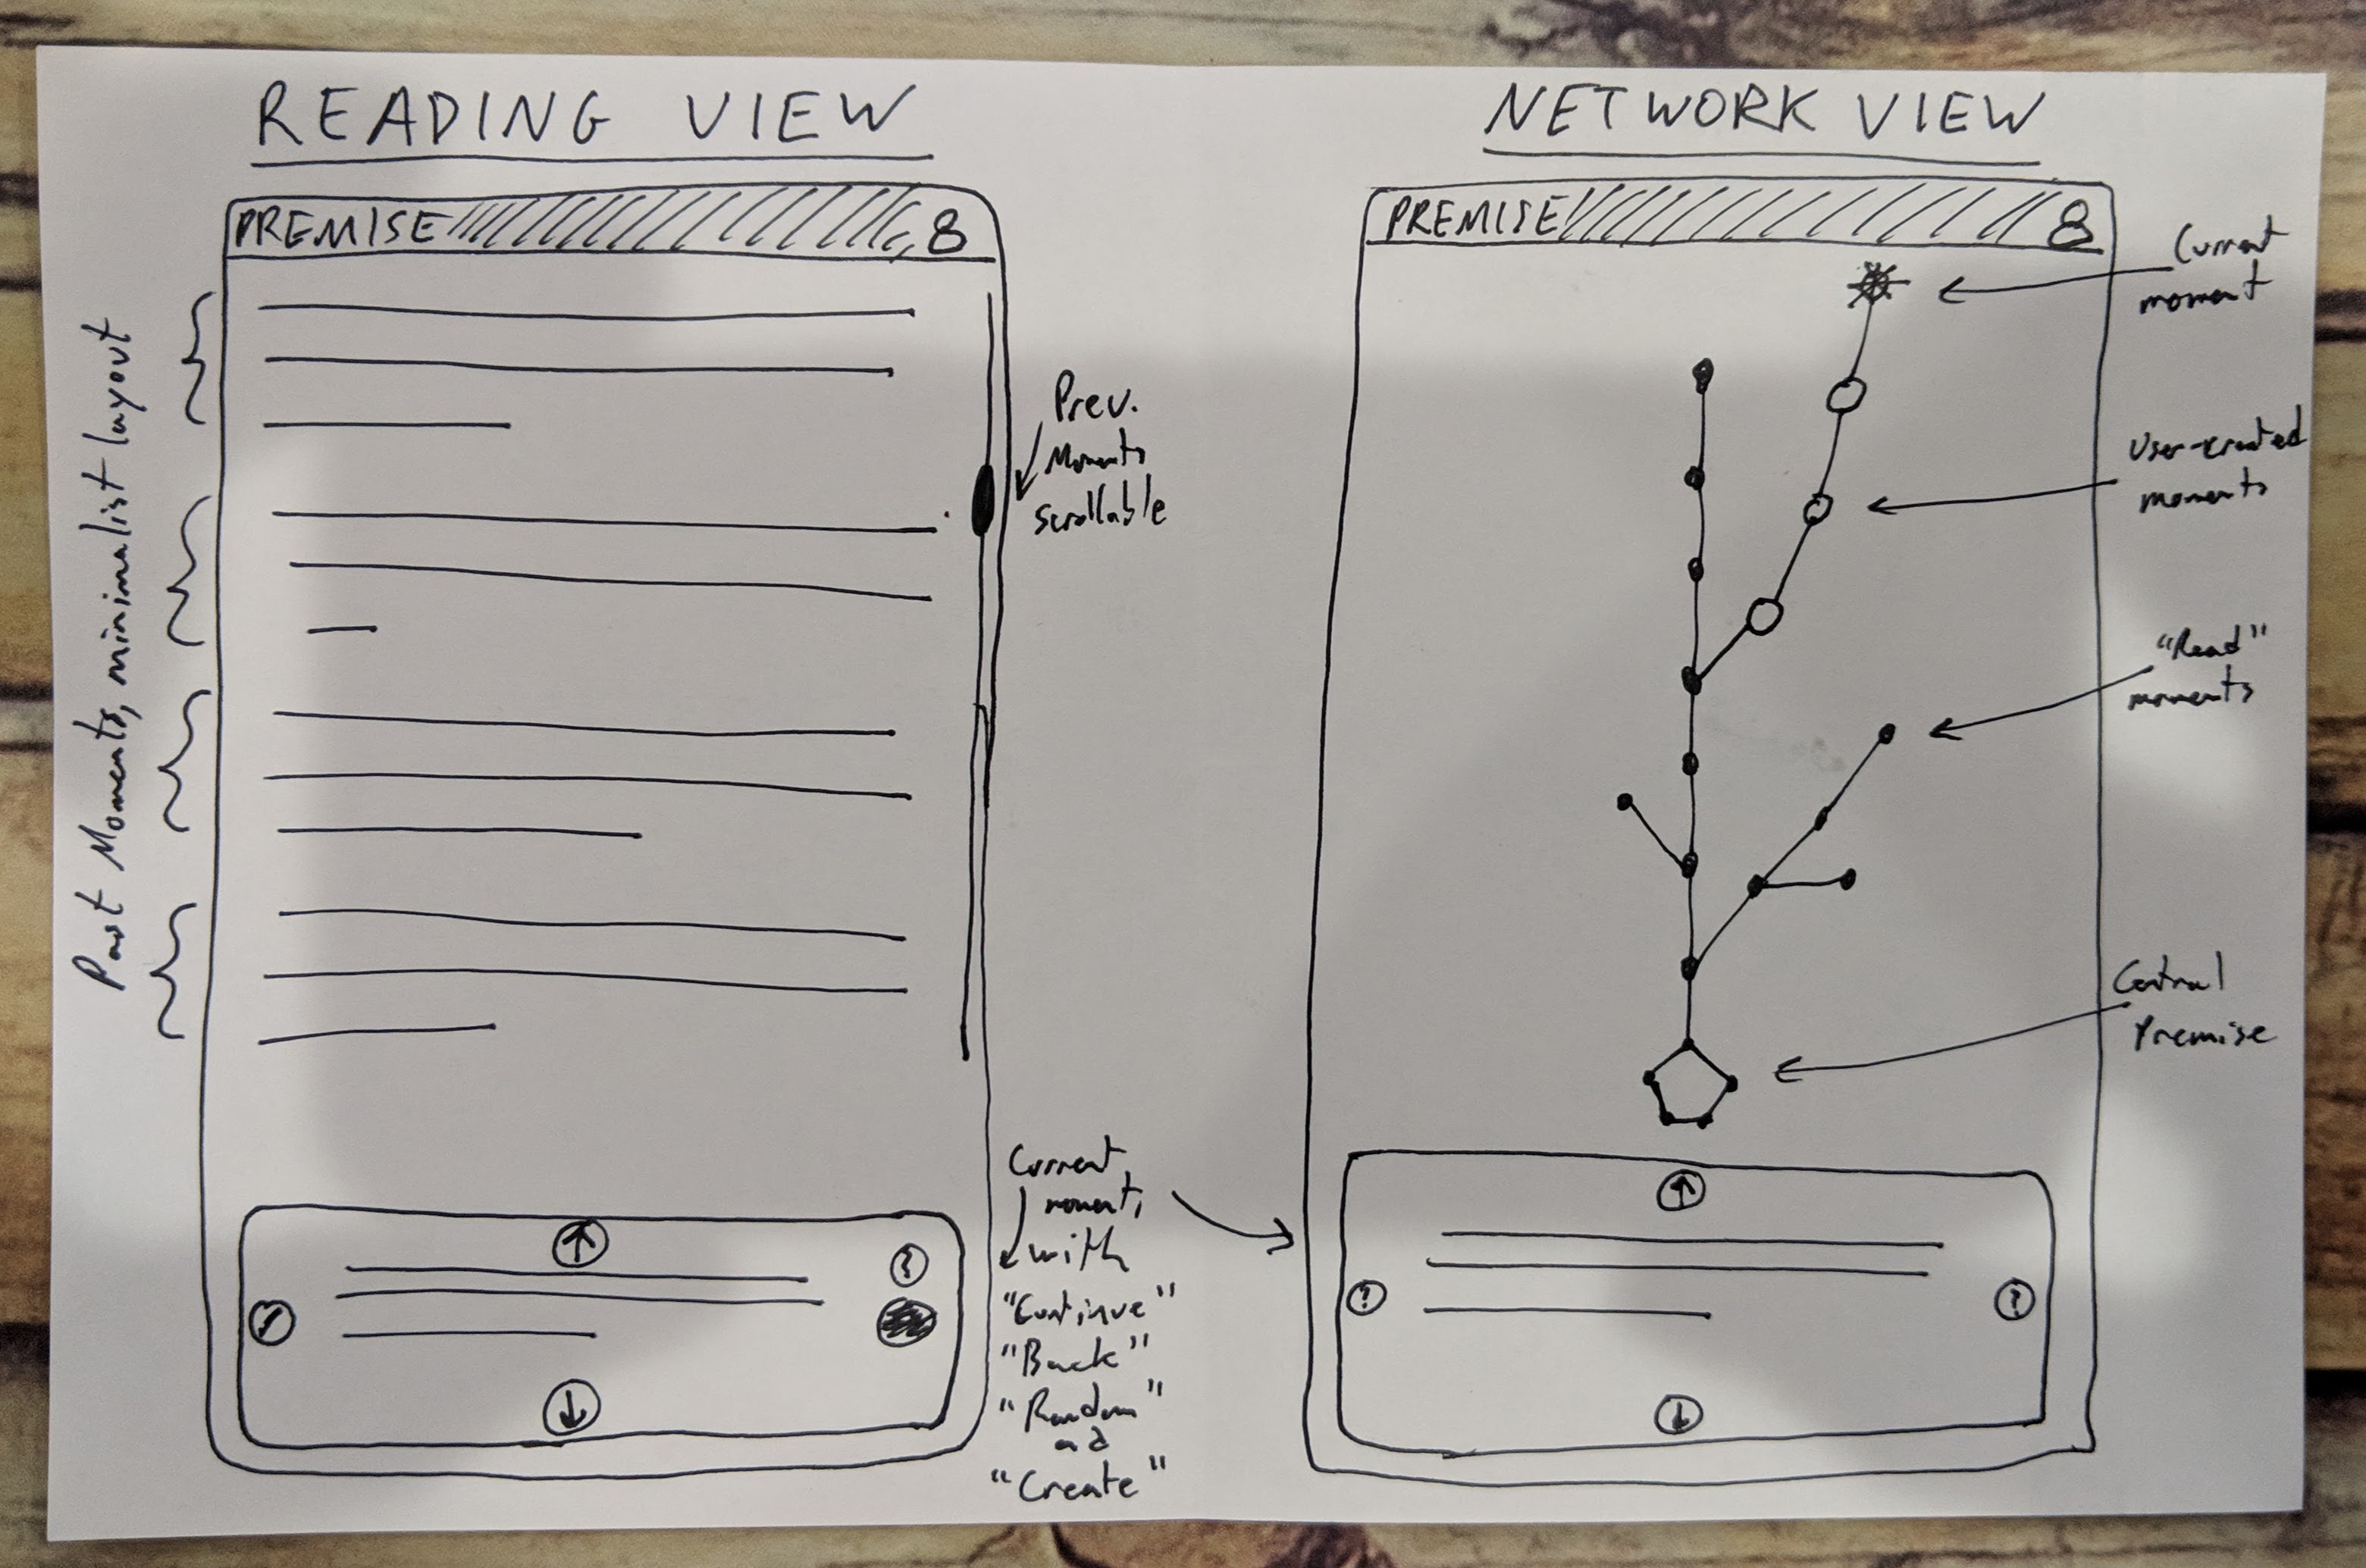 READING VIEW
PREMISE
8
Past Moments, minimalist layout
Prev.
Moments
Scrollable
Current
moment,
with
"Continue"
"Back"
"Random"
ad
"Create"
?
NETWORK VIEW
PREMISE
8
Current
moment
User-created
moments
"Read"
moments
Central
Premise
?
?